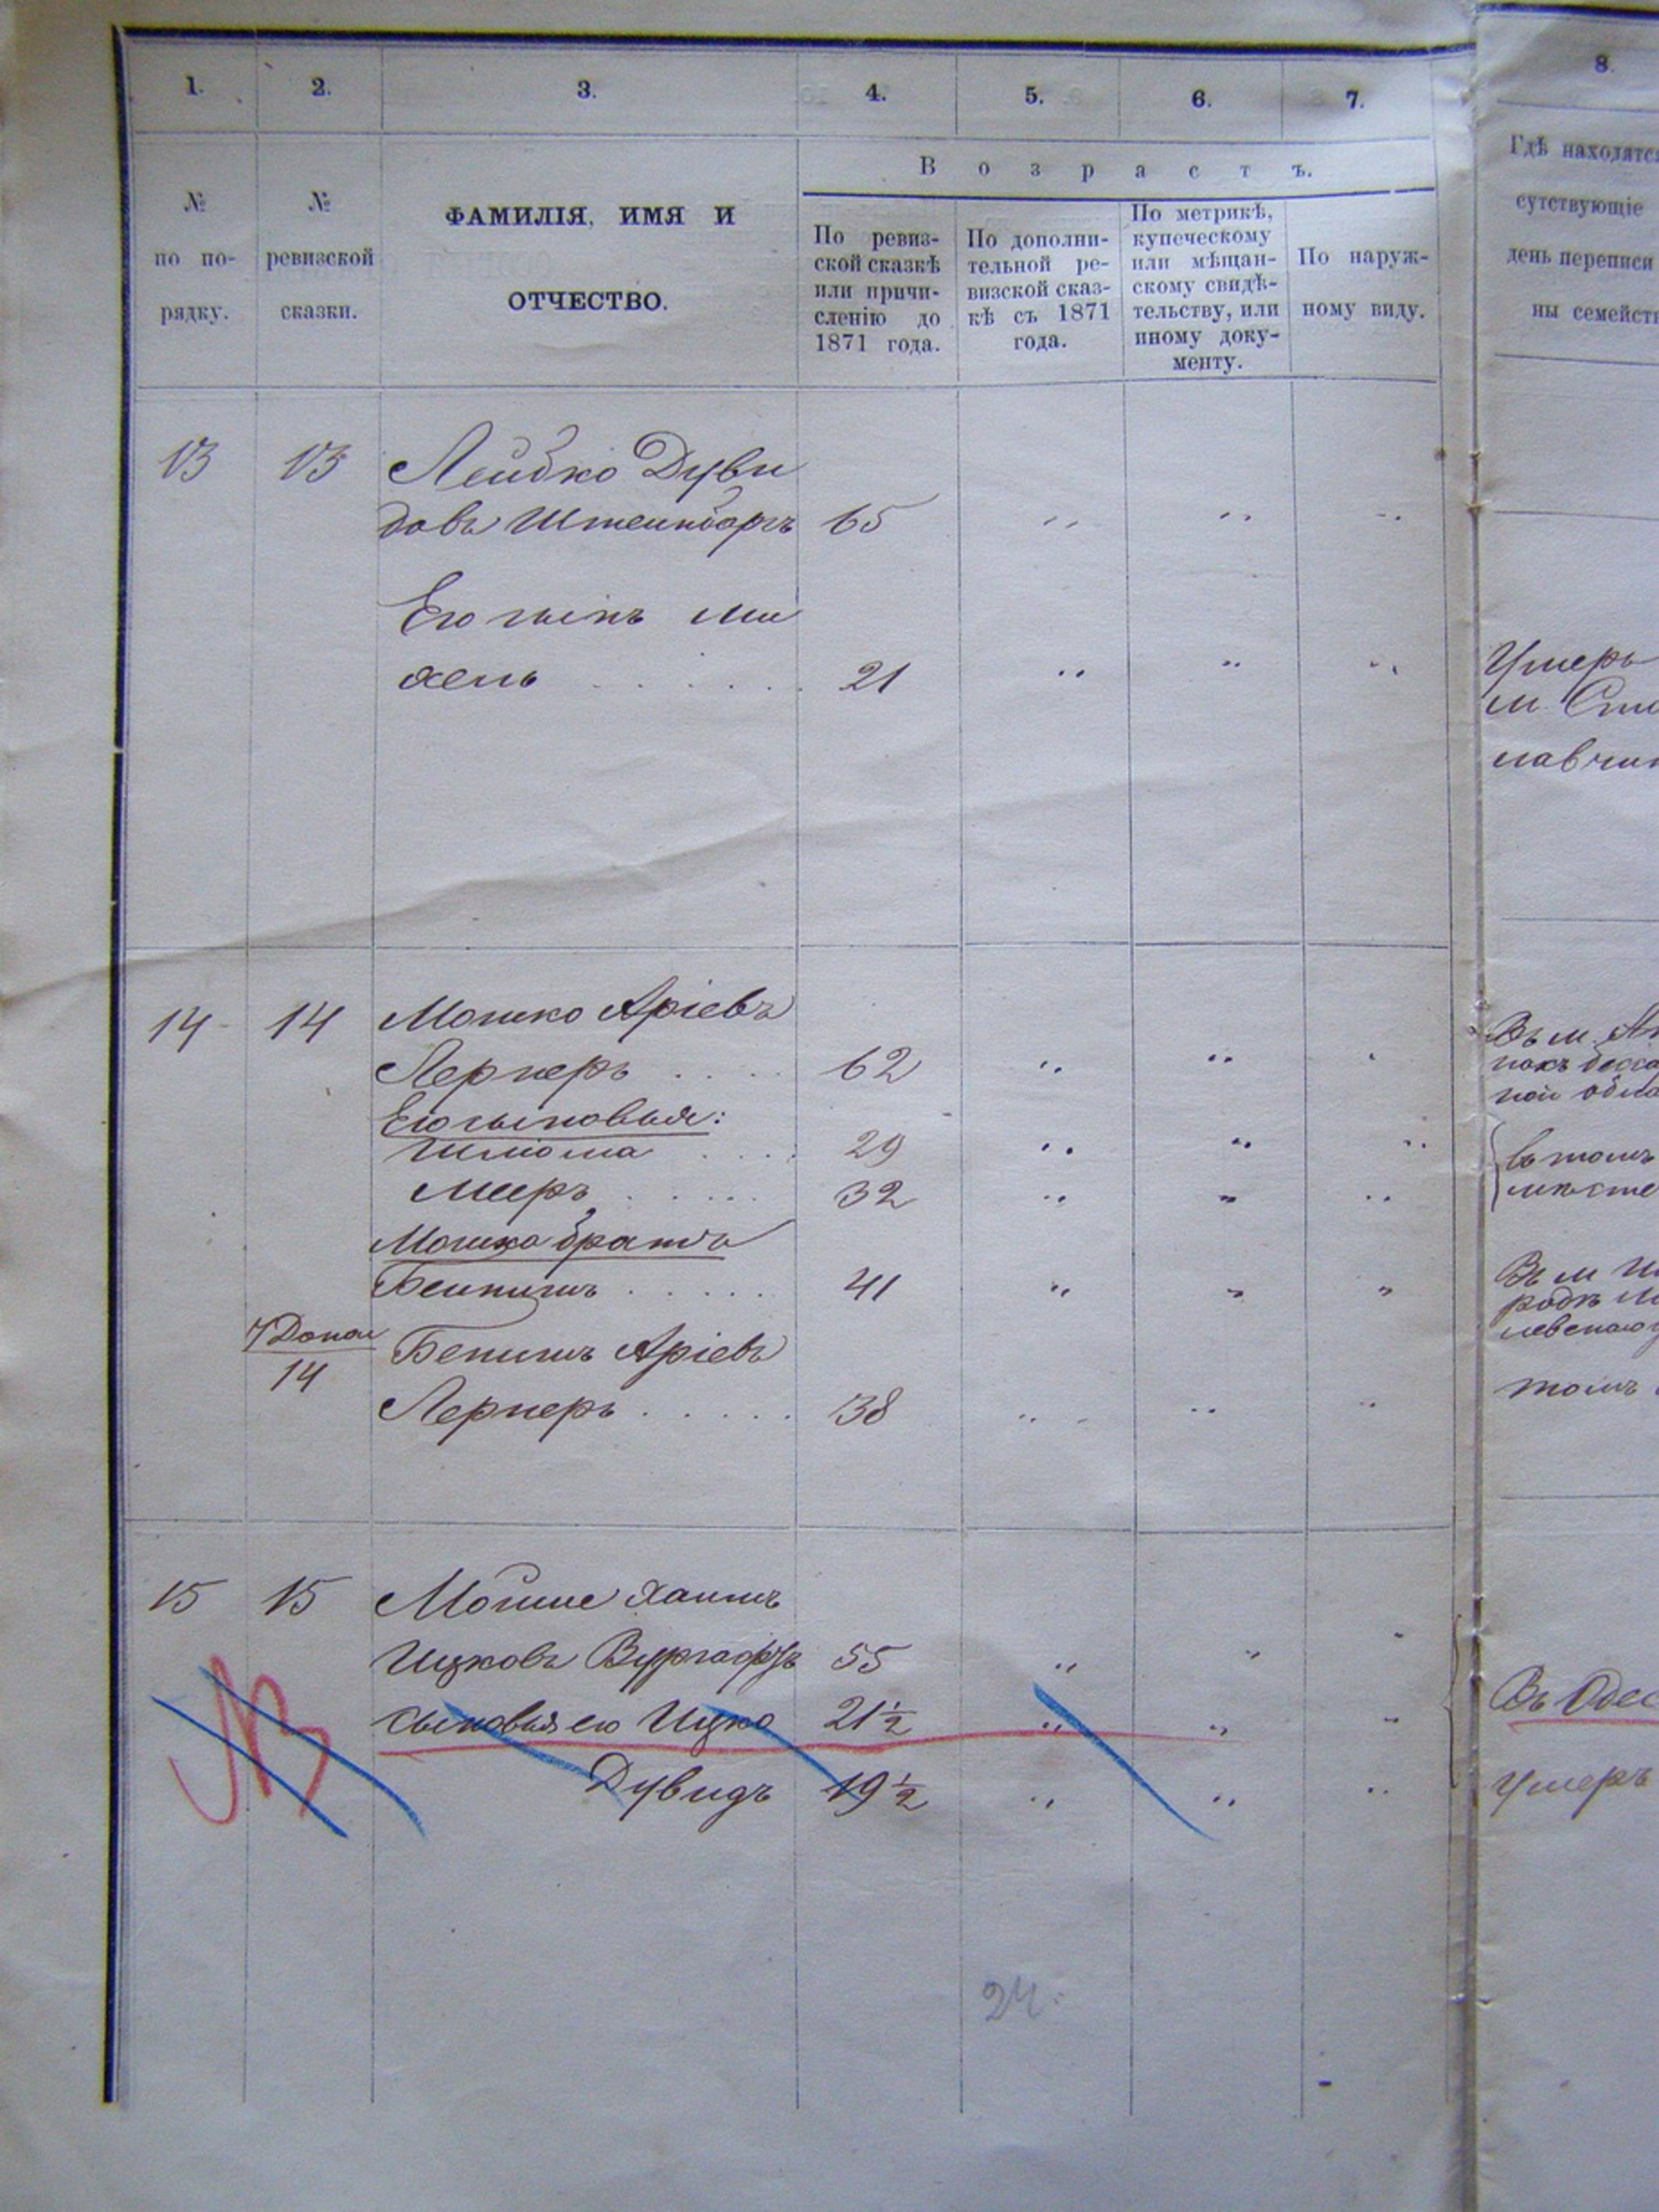 1. 2. 3. 4. 5. 6. 7. 8.
Возрастъ.
№ по по-рядку.
№ ревизской сказки.
ФАМИЛІЯ, ИМЯ И
ОТЧЕСТВО.
По ревиз-
ской сказкѣ
или причи-
сленію до
1871 года.
По дополни-
тельной ре-
визской сказ-
кѣ съ 1871
года.
По метрикѣ,
купеческому
или мѣщан-
скому свидѣ-
тельству, или
иному доку-
менту.
По наруж-
ному виду.
Гдѣ находятся
сутствующіе
день переписи
ны семейст
13 13 Лейбко Дуви
довъ Штейнбаргъ 65 " " "
Его сынъ Ми
хель 21 " " " Умеръ
м.
14 14 Мошко Аріевъ
Лернеръ 62 " " "
Его сыновья:
Шлиома 29 " " " въ томъ
Мееръ 32 " " " мѣсте
Мошка братъ
Беинишъ 41 " " " Въ м
14 Бенишъ Аріевъ
Лернеръ 38 " " " томъ
15 15 Мойше Хаимъ
Ицковъ Вургафтъ 55 " " "
Сыновья его Ицко 21½ " " " Въ Одес
Дувидъ 19½ " " " Умеръ
24.